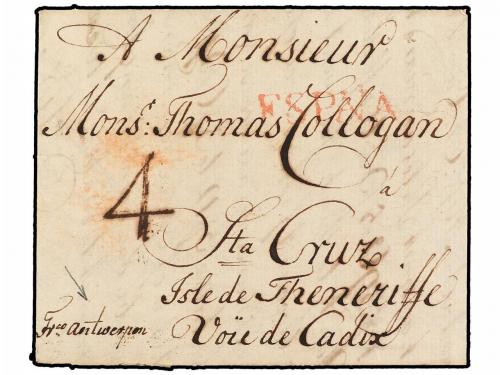 A Monsieur
ESPNA
Monsr. Thomas Collogan
à
4
Sta Cruz
Isle de Theneriffe
Voïe de Cadix
Frco Antwerpen